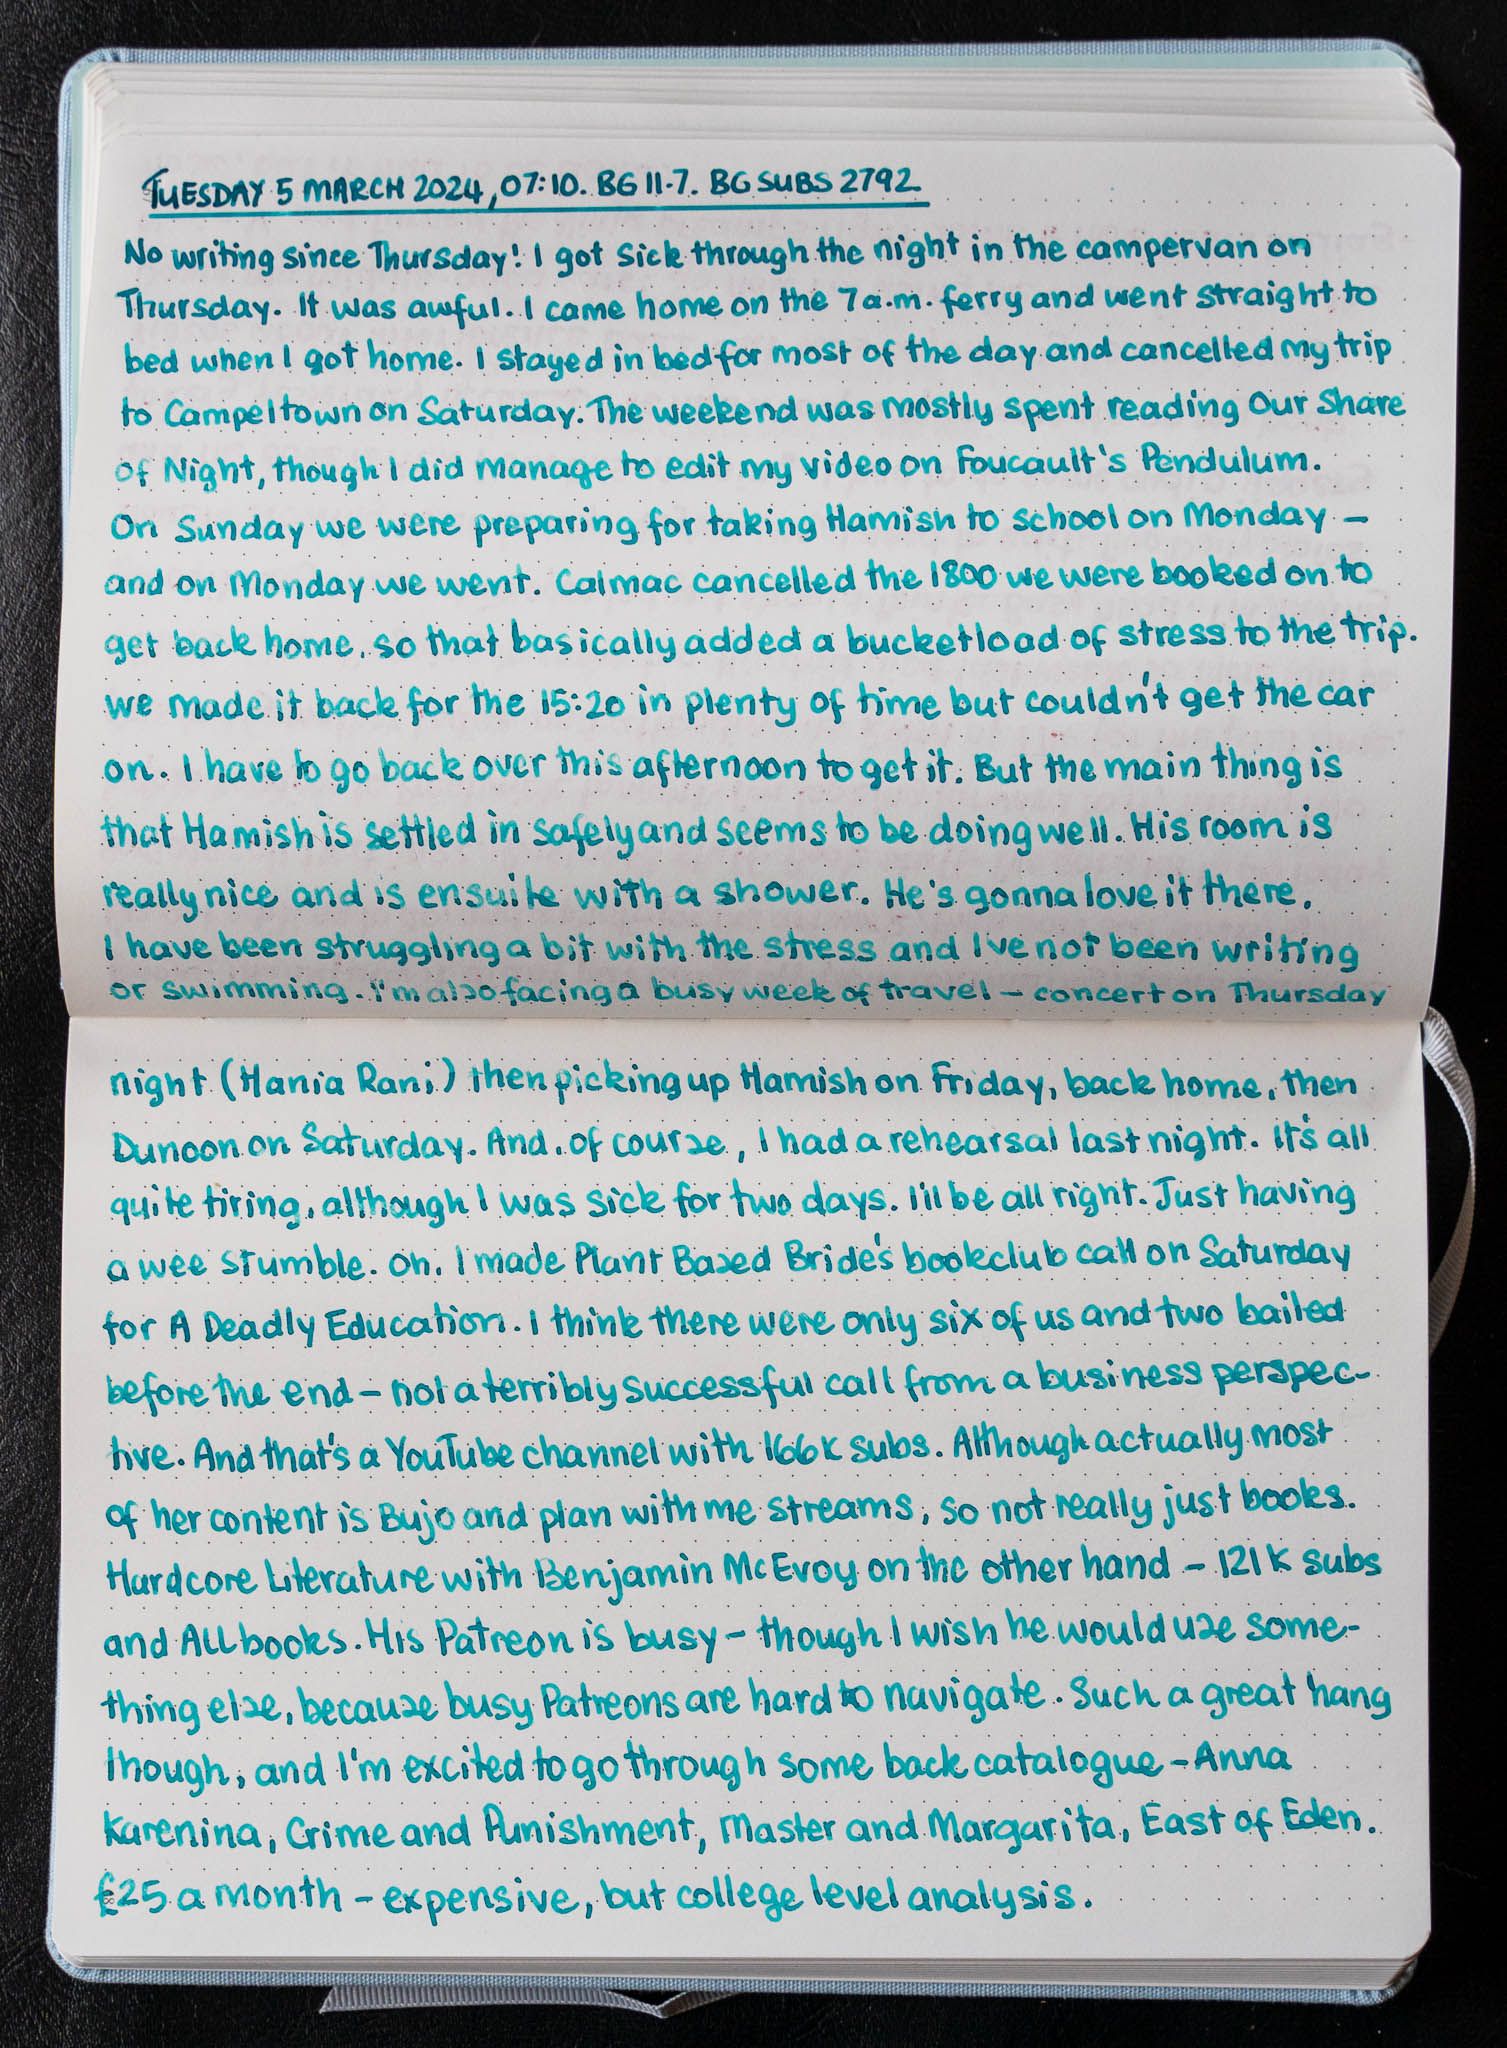 TUESDAY 5 MARCH 2024, 07:10. BG 11.7. BG SUBS 2792
No writing since Thursday! I got sick through the night in the campervan on
Thursday. It was awful. I came home on the 7a.m. ferry and went straight to
bed when I got home. I stayed in bed for most of the day and cancelled my trip
to Campeltown on Saturday. The weekend was mostly spent reading Our Share
of Night, though I did manage to edit my video on Foucault's Pendulum.
On Sunday we were preparing for taking Hamish to school on Monday –
and on Monday we went. Calmac cancelled the 1800 we were booked on to
get back home, so that basically added a bucketload of stress to the trip.
We made it back for the 15:20 in plenty of time but couldn't get the car
on. I have to go back over this afternoon to get it. But the main thing is
that Hamish is settled in safely and seems to be doing well. His room is
really nice and is ensuite with a shower. He's gonna love it there.
I have been struggling a bit with the stress and I've not been writing
or swimming. I'm also facing a busy week of travel – concert on Thursday
night (Hania Rani) then picking up Hamish on Friday, back home, then
Dunoon on Saturday. And, of course, I had a rehearsal last night. It's all
quite tiring, although I was sick for two days. I'll be all right. Just having
a wee stumble. Oh, I made Plant Based Bride's bookclub call on Saturday
for A Deadly Education. I think there were only six of us and two bailed
before the end – not a terribly successful call from a business perspec-
tive. And that's a YouTube channel with 166k subs. Although actually most
of her content is Bujo and plan with me streams, so not really just books.
Hardcore Literature with Benjamin McEvoy on the other hand – 121k subs
and All books. His Patreon is busy – though I wish he would use some-
thing else, because busy Patreons are hard to navigate. Such a great hang
though, and I'm excited to go through some back catalogue – Anna
Karenina, Crime and Punishment, Master and Margarita, East of Eden.
£25 a month – expensive, but college level analysis.